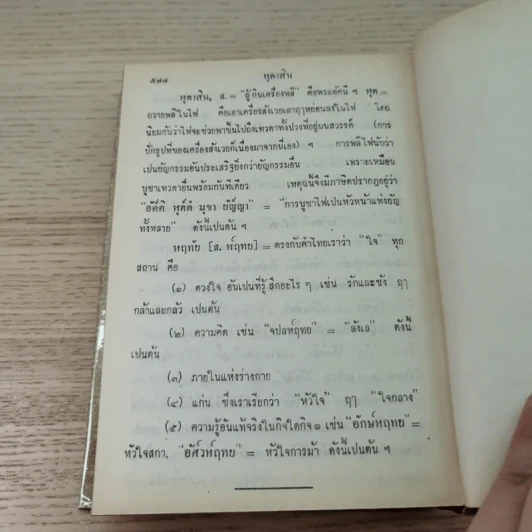 ๕๗๔ หุตาสิน
หุตาสิน, ส. = "ผู้กินเครื่องพลี" คือพระอัคนี ฯ หุต =
ถวายพลีในไฟ คือเอาเครื่องสังเวยเผาฤๅหย่อนลงในไฟ โดย
นิยมกันว่าไฟจะช่วยพาขึ้นไปถึงเทวดาทั้งปวงที่อยู่บนสวรรค์ (การ
ปักธูปที่ของเครื่องสังเวยก็เนื่องมาจากนี้เอง) ฯ การพลีไฟนับว่า
เปนยัญกรรมอันประเสริฐยิ่งกว่ายัญกรรมอื่น เพราะเหมือน
บูชาเทวดาอื่นพร้อมกันทีเดียว เหตุฉนี้จึงมีภาษิตปรากฏอยู่ว่า
"อัคคิ หุตตํ มุขา ยัญญา" = "การบูชาไฟเปนหัวหน้าแห่งยัญ
ทั้งหลาย" ดังนี้เปนต้น ฯ
หฤทัย [ส. ห๎ฤทย] = ตรงกับคำไทยเราว่า "ใจ" ทุก
สถาน คือ
(๑) ดวงใจ อันเปนที่รู้สึกอะไร ๆ เช่น รักและชัง ฤๅ
กล้าและกลัว เปนต้น
(๒) ความคิด เช่น "จปลหฤทย" = "ลังเล" ดังนี้
เปนต้น
(๓) ภายในแห่งร่างกาย
(๔) แก่น ซึ่งเราเรียกว่า "หัวใจ" ฤๅ "ใจกลาง"
(๕) ความรู้อันแท้จริงในกิจใดกิจ ๑ เช่น "อักษหฤทย" =
หัวใจสกา, "อัศวหฤทย" = หัวใจการม้า ดังนี้เปนต้น ฯ